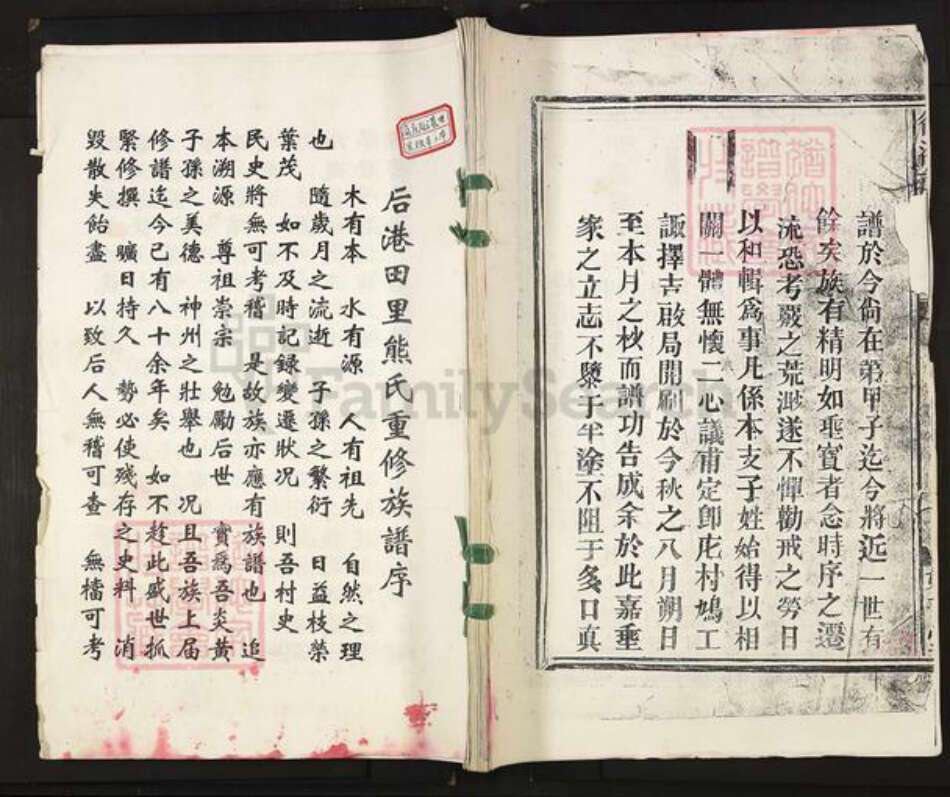 譜於今尙在第甲子迄今將近一世有
餘矣族有精明如聖寳者念時序之遷
流恐考覈之荒邈遂不憚勸戒之勞日
以和輯爲事凡係本支子姓始得以相
關一體無懷二心議甫定卽庀村鳩工
諏擇吉啟局開刷於今秋之八月朔日
至本月之杪而譜功告成余於此嘉垂
家之立志不隳于半塗不阻于多口真
后港田里熊氏重修族譜序
木有本 水有源 人有祖先 自然之理
也 隨歲月之流逝 子孫之繁衍 日益枝榮
葉茂 如不及時記録變遷狀況 則吾村史
民史將無可考稽 是故族亦應有族譜也 追
本溯源 尊祖崇宗 勉勵后世 實爲吾炎黃
子孫之美德 神州之壯舉也 況且吾族上届
修譜迄今已有八十余年矣 如不趁此盛世抓
緊修撰 曠日持久 勢必使殘存之史料 消
毀散失飴盡 以致后人無稽可查 無檔可考
FamilySearch